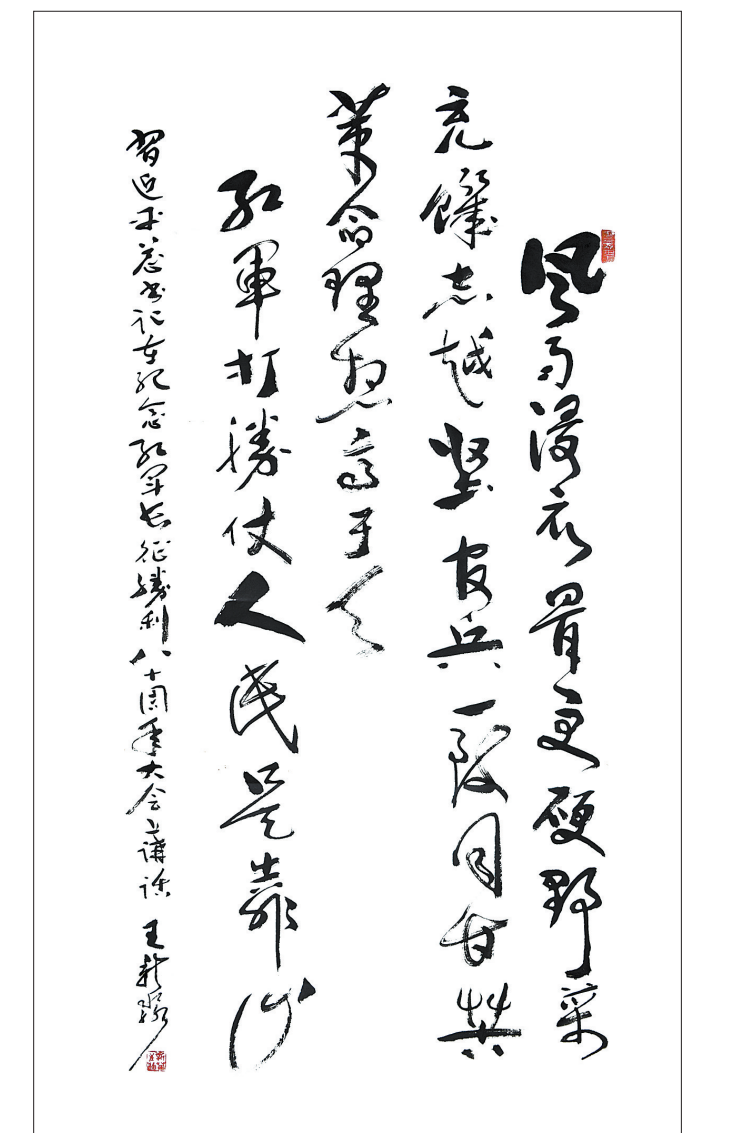 风雨浸衣骨更硬野菜
充饑志越坚官兵一致同甘共
革命理想高于天
红軍打勝仗人民是靠山
習近平总书记在纪念红军长征勝利八十周年大会上講话 王